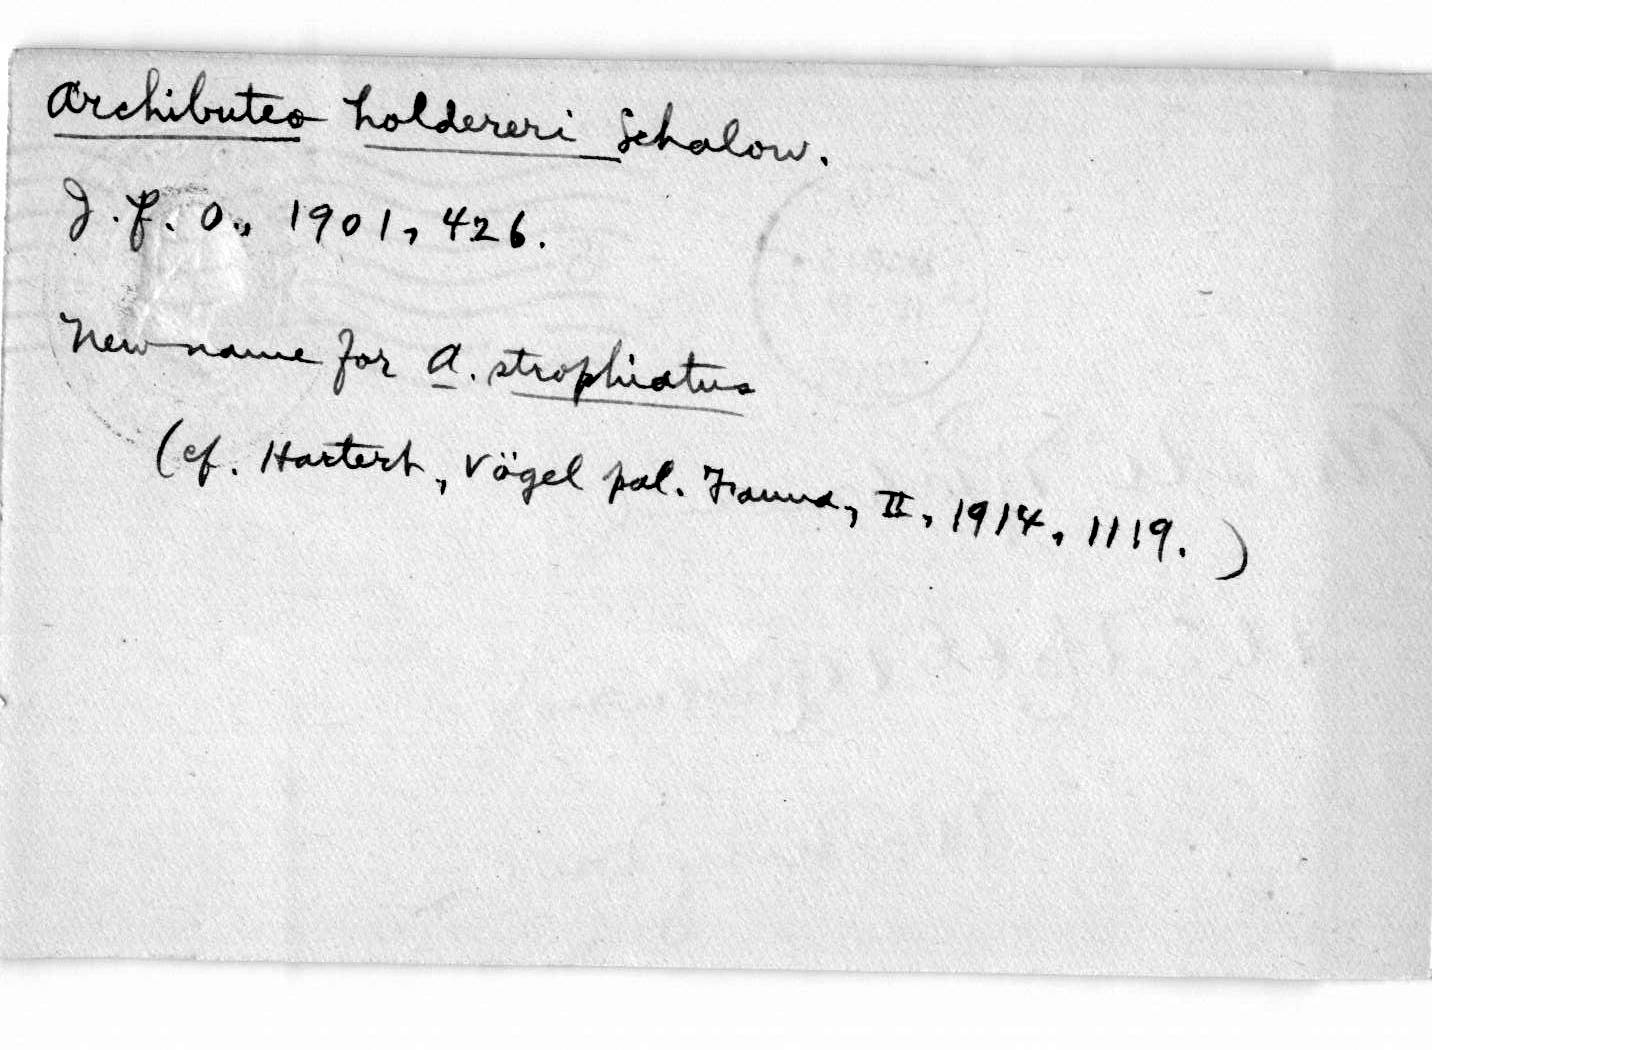 Archibuteo holdereri Schalow.
J. f. O., 1901, 426.
New name for A. strophiatus
(cf. Hartert, Vögel pal. Fauna, II, 1914, 1119.)